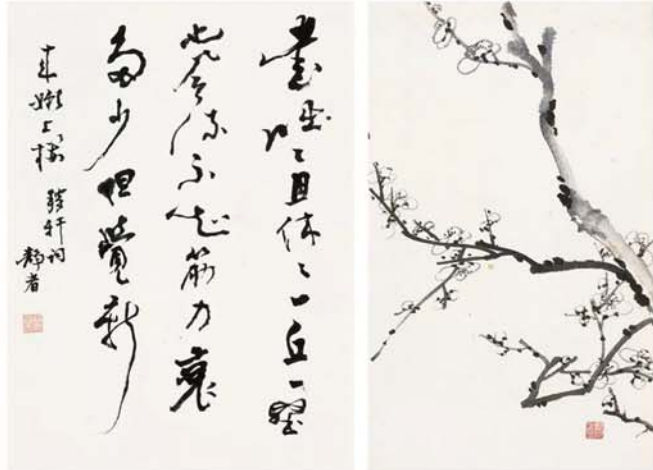 書咄〻且休〻一丘一壑
也風流不知筋力衰
多少但覺新
來嬾上樓 稼軒詞
靜者